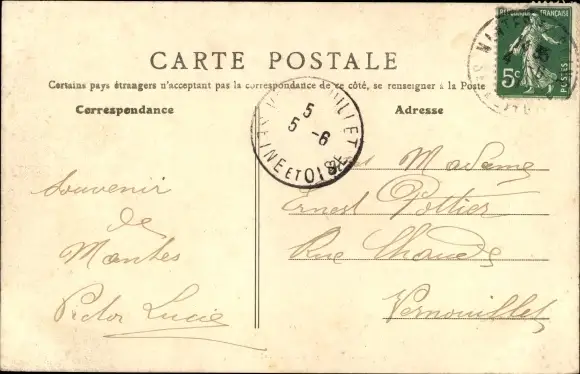 CARTE POSTALE
Certains pays étrangers n'acceptant pas la correspondance de ce côté, se renseigner à la Poste
Correspondance
Adresse
RÉPUBLIQUE FRANÇAISE
5c
POSTES
5
5 -6
SEINE ET OISE
Souvenir
de
Mantes
Victor Lucie
Madame
Ernest Pottier
Rue Chaude
Vernouillet